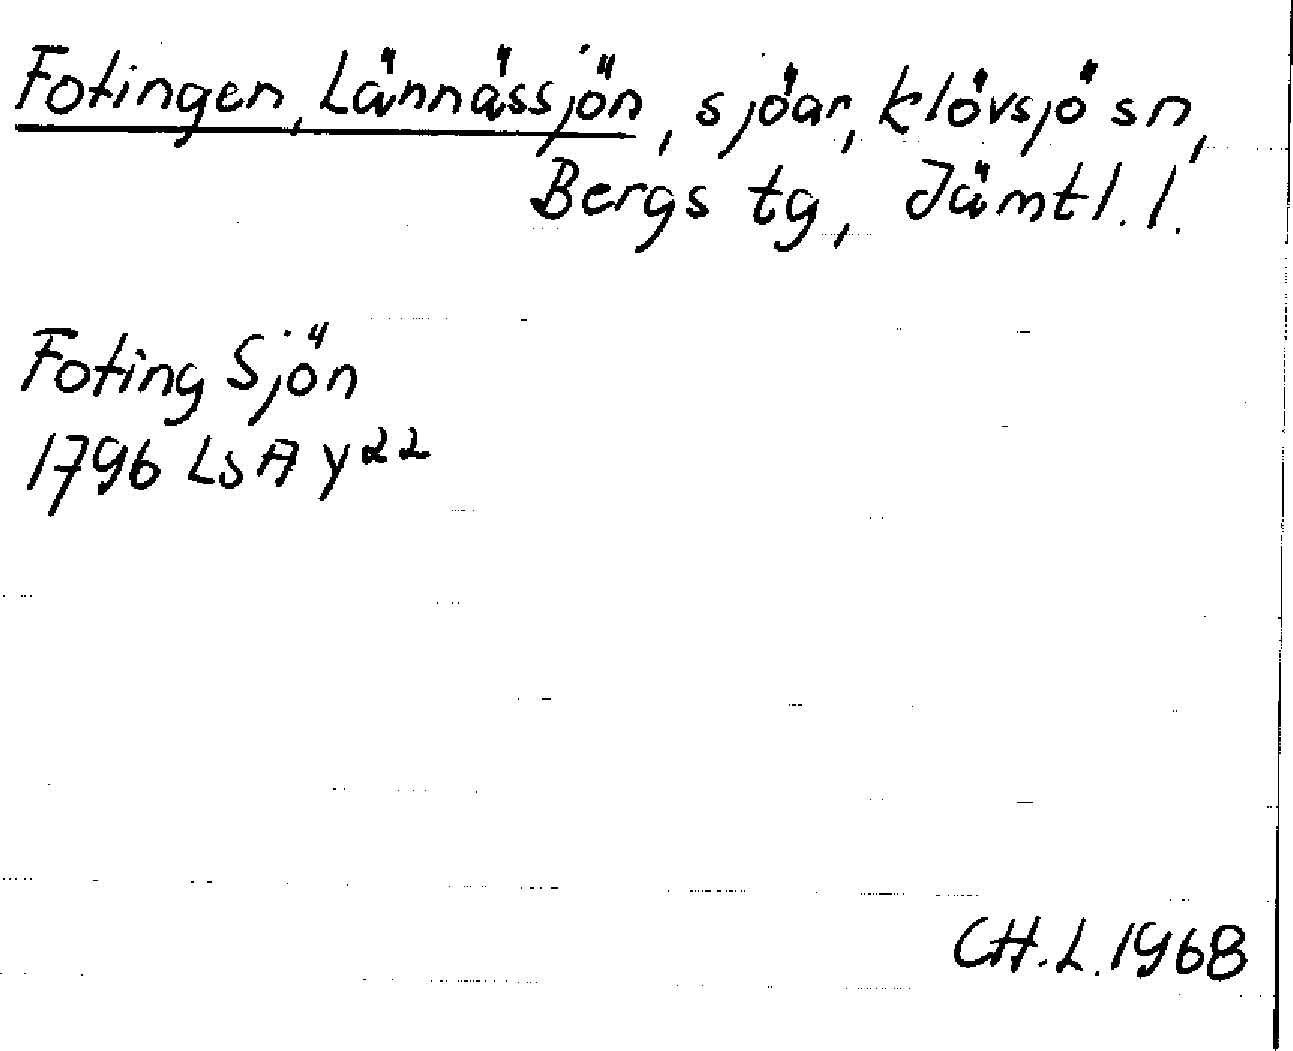 Fotingen, Lännässjön, sjöar, Klövsjö sn,
Bergs tg, Jämtl. l.
Foting Sjön
1796 LSA Y22
CH.L. 1968